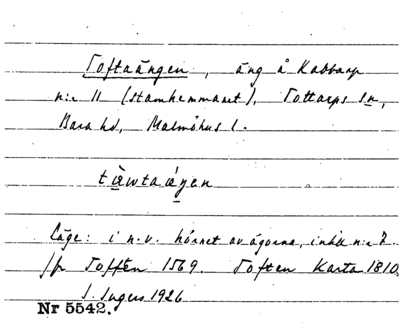 Toftaängen, äng å Kabbarp
n:r 11 (stamhemmanet), Tottarps sn,
Bara hd, Malmöhus l.
tàwtaáŋen
Läge: i n.v. hörnet av ägorna, intill n:r 7
jfr Tofften 1569. Toften Karta 1810.
I. Ingers 1926
Nr 5542.